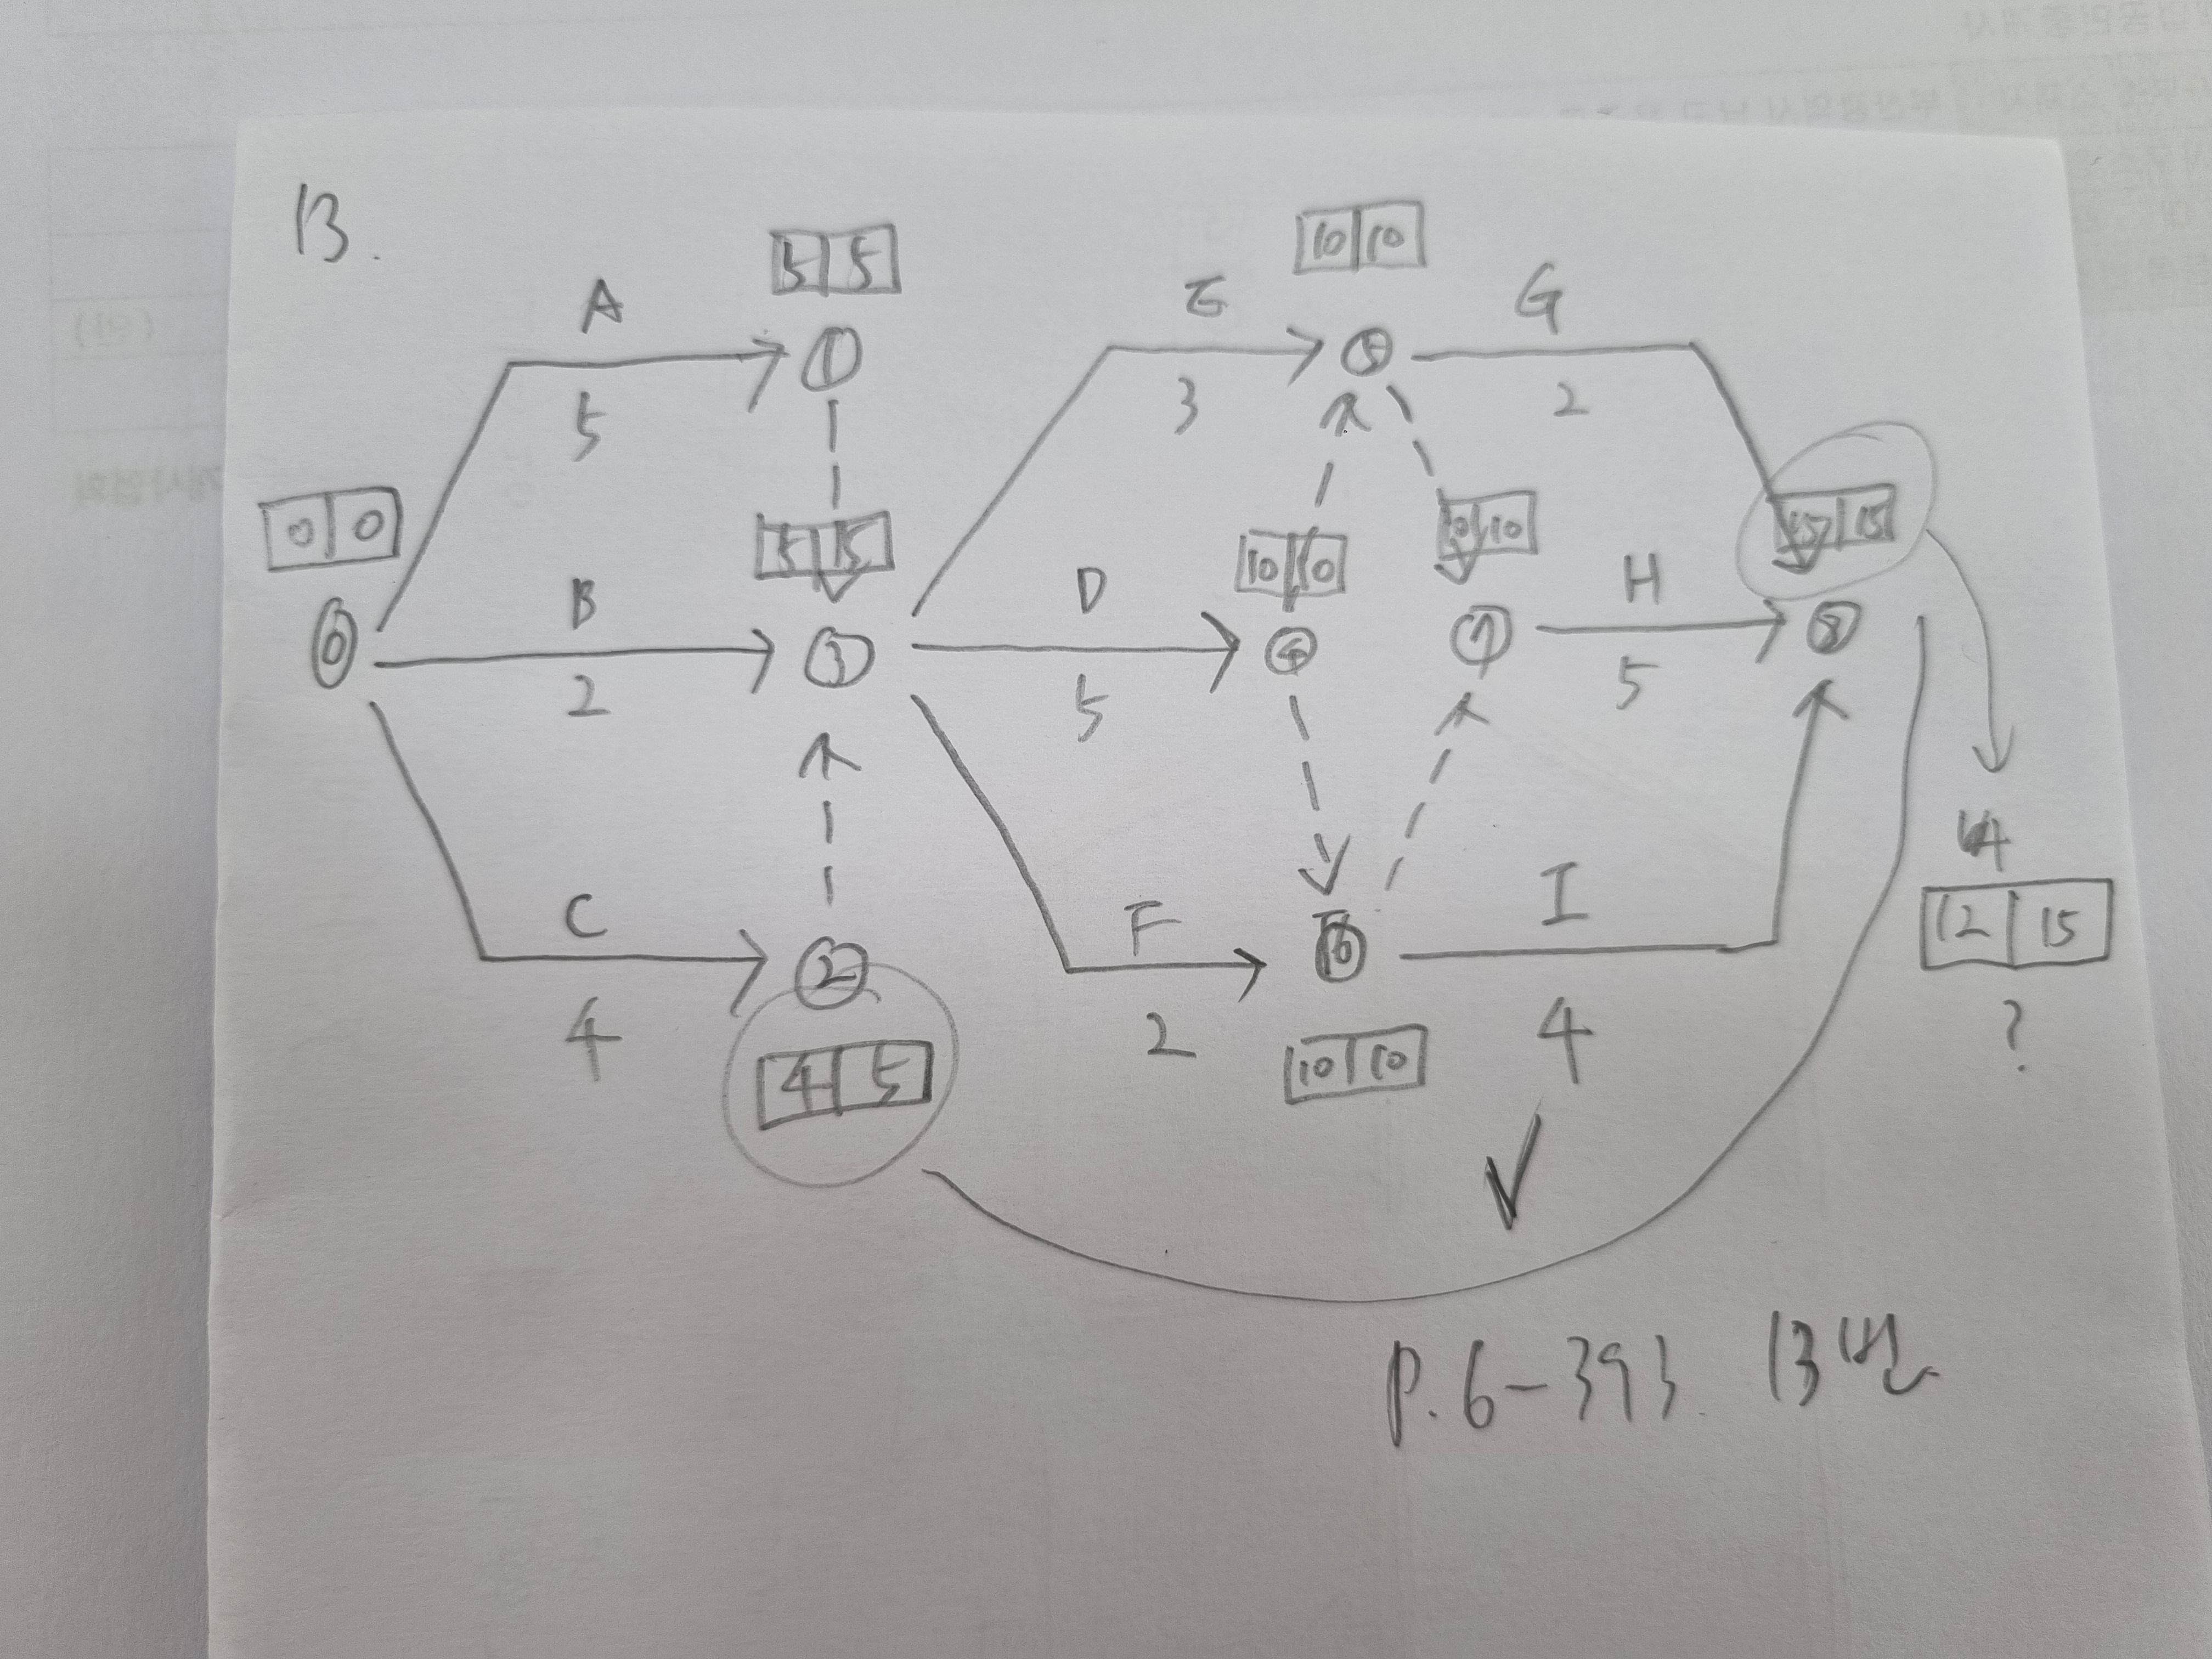 13.
5 5
10 10
A
E
G
①
⑤
5
3
2
0 0
5 5
10 10
10 10
15 15
B
D
H
⓪
③
④
⑦
⑧
2
5
5
14
C
F
I
12 15
②
⑥
4
2
4
?
4 5
10 10
P. 6-393. 13번